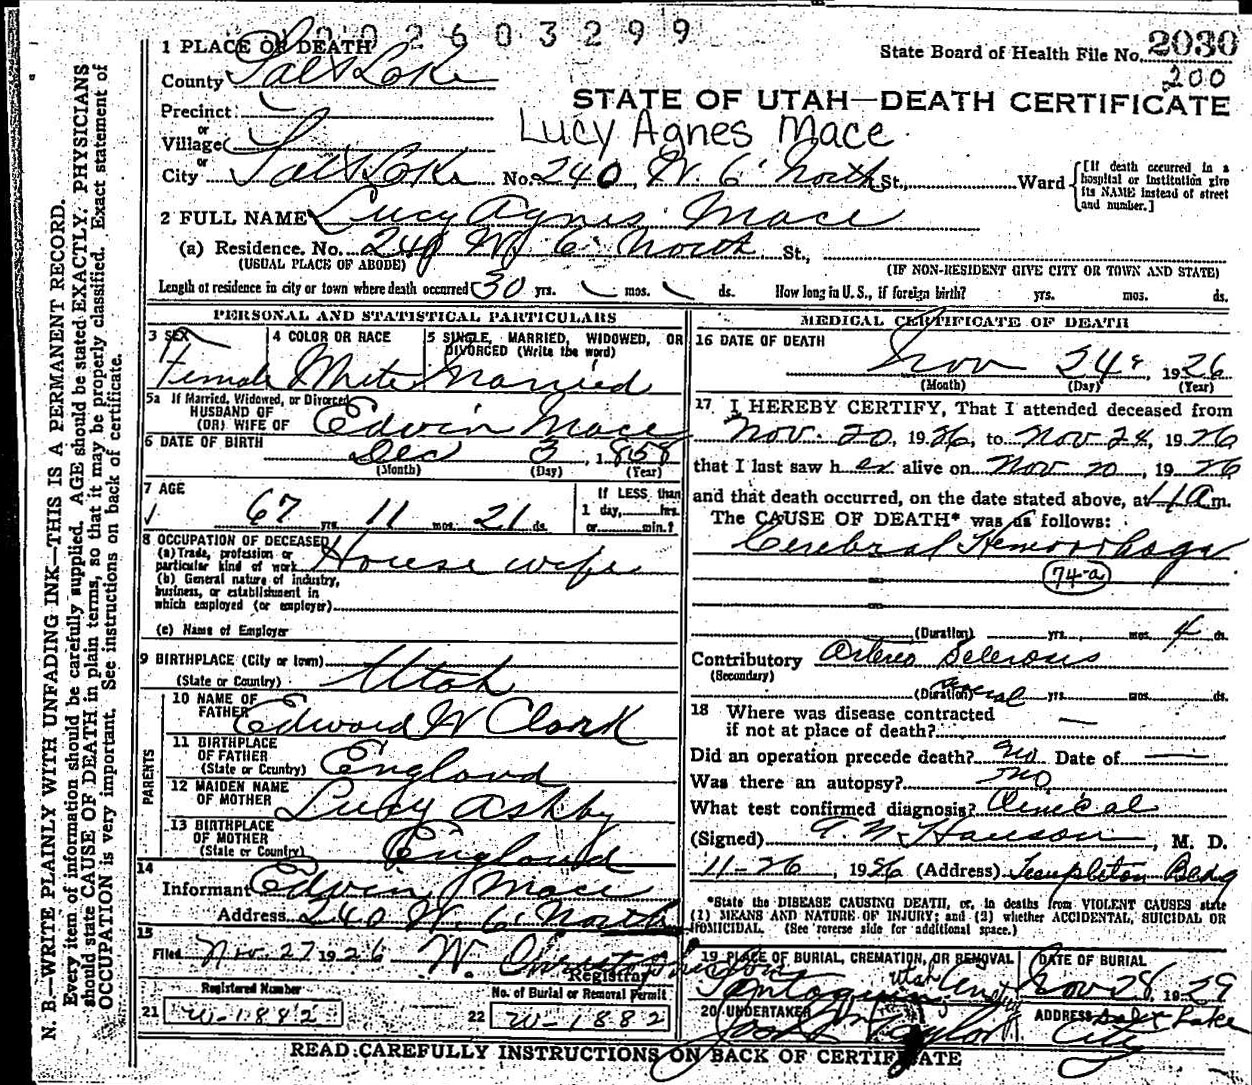 2 6 0 3 2 9 9
1 PLACE OF DEATH
State Board of Health File No. 2030
200
County Salt Lake
STATE OF UTAH—DEATH CERTIFICATE
Precinct
or
Village
Lucy Agnes Mace
or
City Salt Lake No. 240 W. 6 North St., Ward [If death occurred in a hospital or institution give its NAME instead of street and number.]
2 FULL NAME Lucy Agnes Mace
(a) Residence. No. 240 W 6 North St.,
(USUAL PLACE OF ABODE) (IF NON-RESIDENT GIVE CITY OR TOWN AND STATE)
Length of residence in city or town where death occurred 30 yrs. mos. ds. How long in U. S., if foreign birth? yrs. mos. ds.
PERSONAL AND STATISTICAL PARTICULARS
3 SEX
Female
4 COLOR OR RACE
White
5 SINGLE, MARRIED, WIDOWED, OR
DIVORCED (Write the word)
Married
5a If Married, Widowed, or Divorced
HUSBAND OF
(OR) WIFE OF Edwin Mace
6 DATE OF BIRTH
Dec 3, 1858
(Month) (Day) (Year)
7 AGE
67 yrs. 11 mos. 21 ds.
If LESS than
1 day, hrs.
or min.?
8 OCCUPATION OF DECEASED
(a) Trade, profession or
particular kind of work House wife
(b) General nature of industry,
business, or establishment in
which employed (or employer)
(c) Name of Employer
9 BIRTHPLACE (City or town)
(State or Country) Utah
PARENTS
10 NAME OF
FATHER Edward W Clark
11 BIRTHPLACE
OF FATHER
(State or Country) England
12 MAIDEN NAME
OF MOTHER Lucy Ashby
13 BIRTHPLACE
OF MOTHER
(State or Country) England
14
Informant Edwin Mace
Address 240 W. 6 North
15
Filed Nov. 27 1926 W.
Registrar
Registered Number
No. of Burial or Removal Permit
21 W-1882 22 W-1882
MEDICAL CERTIFICATE OF DEATH
16 DATE OF DEATH
Nov 24, 1926
(Month) (Day) (Year)
17 I HEREBY CERTIFY, That I attended deceased from
Nov. 20, 1926, to Nov 24, 1926
that I last saw h er alive on Nov 20, 1926
and that death occurred, on the date stated above, at 11 a m.
The CAUSE OF DEATH* was as follows:
Cerebral Hemorrhage
74-a
(Duration) yrs. mos. 4 ds.
Contributory Arterio Sclerosis
(Secondary)
(Duration) several yrs. mos. ds.
18 Where was disease contracted
if not at place of death? —
Did an operation precede death? no Date of —
Was there an autopsy? no
What test confirmed diagnosis? Clinical
(Signed) Hanson, M. D.
11-26, 1926 (Address) Templeton Bldg
*State the DISEASE CAUSING DEATH, or, in deaths from VIOLENT CAUSES state
(1) MEANS AND NATURE OF INJURY; and (2) whether ACCIDENTAL, SUICIDAL OR
HOMICIDAL. (See reverse side for additional space.)
19 PLACE OF BURIAL, CREMATION, OR REMOVAL
Utah
DATE OF BURIAL
Nov 28, 1929
20 UNDERTAKER
Taylor
ADDRESS Salt Lake
City
READ CAREFULLY INSTRUCTIONS ON BACK OF CERTIFICATE
N. B.—WRITE PLAINLY WITH UNFADING INK—THIS IS A PERMANENT RECORD.
Every item of information should be carefully supplied. AGE should be stated EXACTLY. PHYSICIANS
should state CAUSE OF DEATH in plain terms, so that it may be properly classified. Exact statement of
OCCUPATION is very important. See instructions on back of certificate.